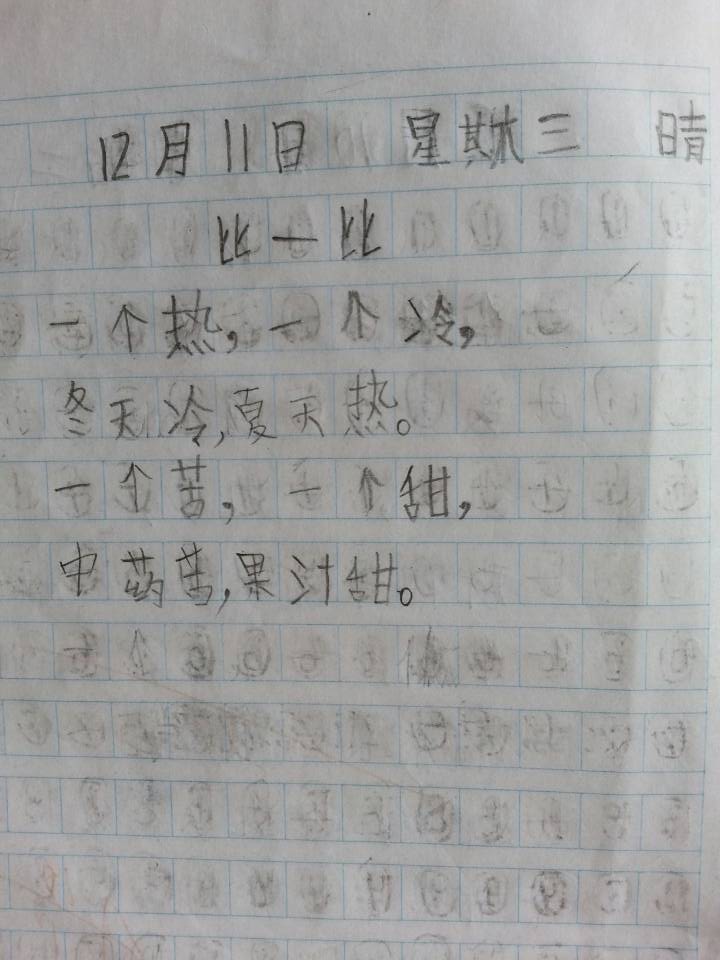 12月11日 星期三 晴
比一比
一个热,一个冷,
冬天冷,夏天热。
一个苦,一个甜,
中药苦,果汁甜。